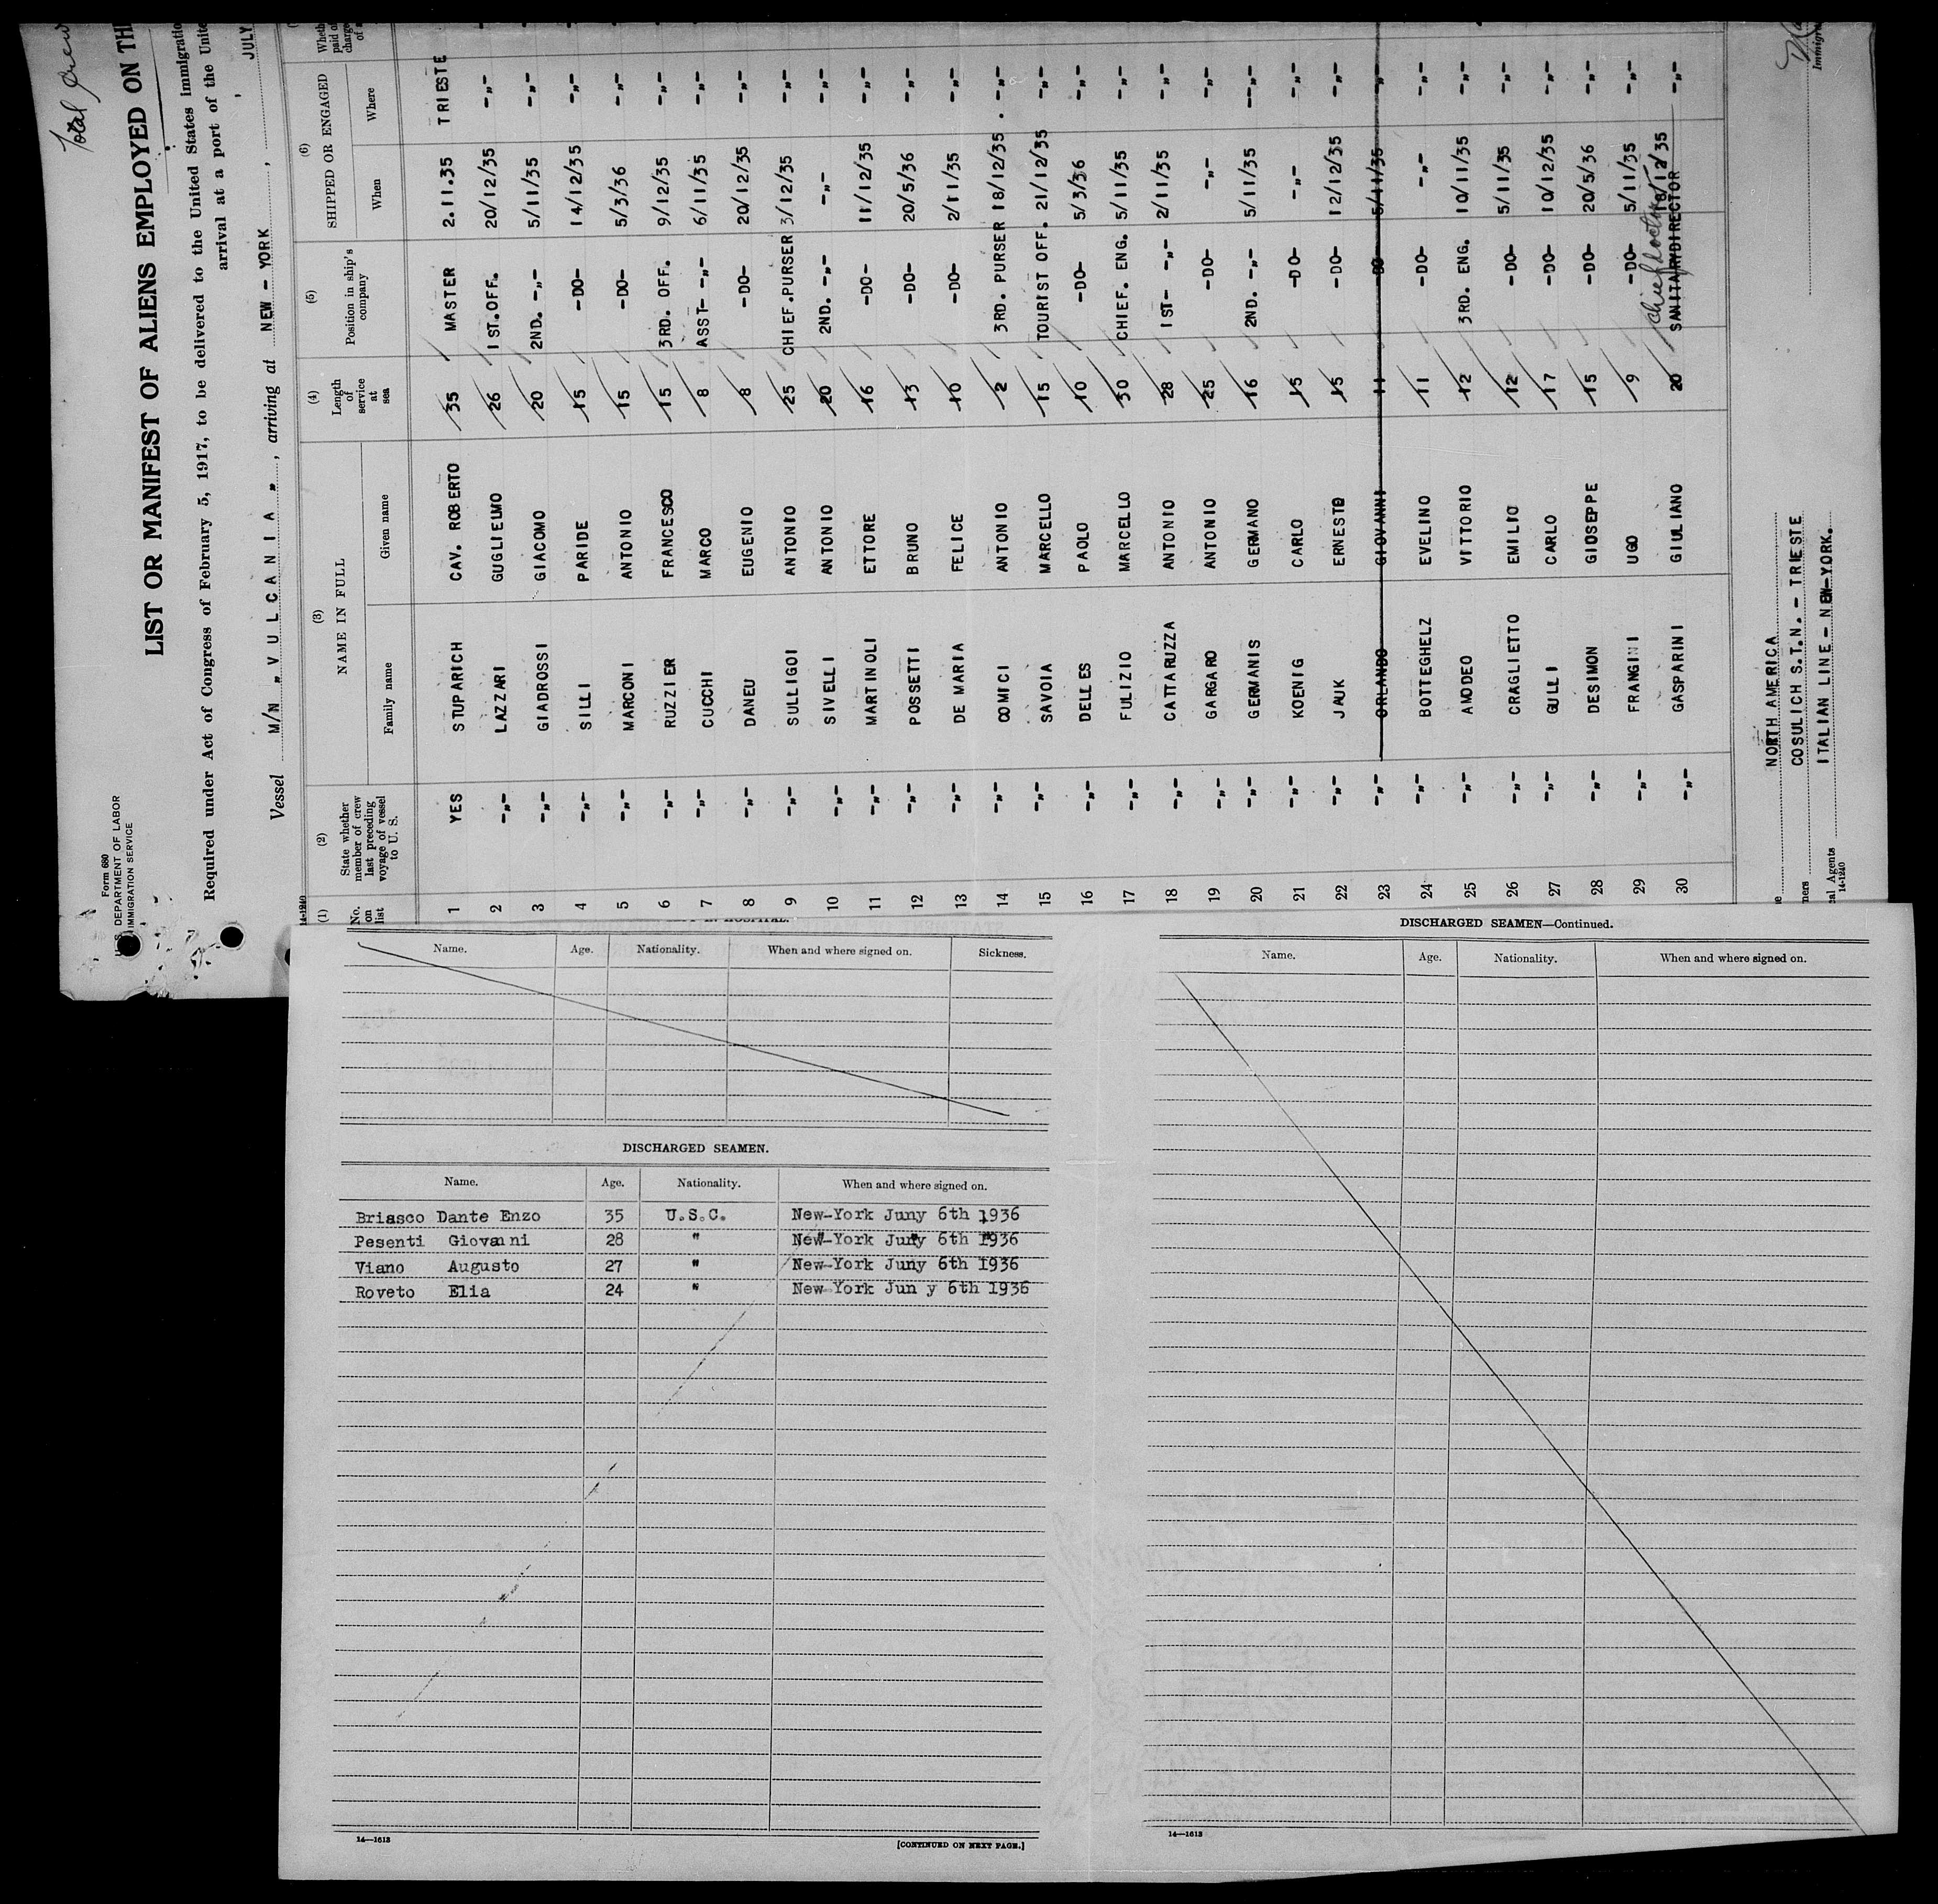 Total Crew
Form 680
U. S. DEPARTMENT OF LABOR
IMMIGRATION SERVICE
LIST OR MANIFEST OF ALIENS EMPLOYED ON TH
Required under Act of Congress of February 5, 1917, to be delivered to the United States immigratio
arrival at a port of the Unite
Vessel M/N " V U L C A N I A " , arriving at NEW - YORK , JULY
14-1240
(1) (2) (3) (4) (5) (6)
No. on list State whether member of crew last preceding voyage of vessel to U. S. NAME IN FULL Length of service at sea Position in ship's company SHIPPED OR ENGAGED
Family name Given name When Where
1 YES STUPARICH CAV. ROBERTO 35 MASTER 2.11.35 TRIESTE
2 -"- LAZZARI GUGLIELMO 26 1ST.OFF. 20/12/35 -"-
3 -"- GIADROSSI GIACOMO 20 2ND. -"- 5/11/35 -"-
4 -"- SILLI PARIDE 15 -DO- 14/12/35 -"-
5 -"- MARCONI ANTONIO 15 -DO- 5/3/36 -"-
6 -"- RUZZIER FRANCESCO 15 3RD. OFF. 9/12/35 -"-
7 -"- CUCCHI MARCO 8 ASST- -"- 6/11/35 -"-
8 -"- DANEU EUGENIO 8 -DO- 20/12/35 -"-
9 -"- SULLIGOI ANTONIO 25 CHIEF.PURSER 3/12/35 -"-
10 -"- SIVELLI ANTONIO 20 2ND. -"- -"- -"-
11 -"- MARTINOLI ETTORE 16 -DO- 11/12/35 -"-
12 -"- POSSETTI BRUNO 13 -DO- 20/5/36 -"-
13 -"- DE MARIA FELICE 10 -DO- 2/11/35 -"-
14 -"- COMICI ANTONIO 2 3RD. PURSER 18/12/35 . -"-
15 -"- SAVOIA MARCELLO 15 TOURIST OFF. 21/12/35 -"-
16 -"- DELLES PAOLO 10 -DO- 5/3/36 -"-
17 -"- FULIZIO MARCELLO 30 CHIEF. ENG. 5/11/35 -"-
18 -"- CATTARUZZA ANTONIO 28 1ST- -"- 2/11/35 -"-
19 -"- GARGARO ANTONIO 25 -DO- -"- -"-
20 -"- GERMANIS GERMANO 16 2ND. -"- 5/11/35 --"-
21 -"- KOENIG CARLO 15 -DO- -"- -"-
22 -"- JAUK ERNESTO 15 -DO- 12/12/35 -"-
23 -"- ORLANDO GIOVANNI 11 -DO- 5/11/35 -"-
24 -"- BOTTEGHELZ EVELINO 11 -DO- -"- -"-
25 -"- AMODEO VITTORIO 12 3RD. ENG. 10/11/35 -"-
26 -"- CRAGLIETTO EMILIO 12 -DO- 5/11/35 -"-
27 -"- GULLI CARLO 17 -DO- 10/12/35 -"-
28 -"- DESIMON GIOSEPPE 15 -DO- 20/5/36 -"-
29 -"- FRANGINI UGO 9 -DO- 5/11/35 -"-
30 -"- GASPARINI GIULIANO 20 SANITARYDIRECTOR Chief doctor 18/12/35 -"-
NORTH AMERICA
COSULICH S.T.N. - TRIESTE
cal Agents ITALIAN LINE - NEW-YORK.
14-1240
Immigr
Name. Age. Nationality. When and where signed on. Sickness.
DISCHARGED SEAMEN.
Name. Age. Nationality. When and where signed on.
Briasco Dante Enzo 35 U.S.C. New-York Juny 6th 1936
Pesenti Giovanni 28 " New-York Juny 6th 1936
Viano Augusto 27 " New-York Juny 6th 1936
Roveto Elia 24 " New-York Jun y 6th 1936
14—1613
[CONTINUED ON NEXT PAGE.]
DISCHARGED SEAMEN—Continued.
Name. Age. Nationality. When and where signed on.
14—1613